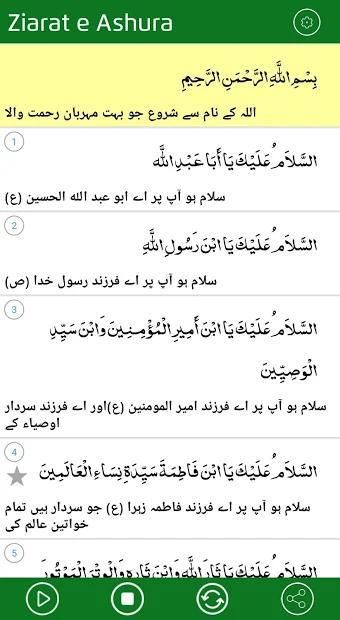 Ziarat e Ashura
بِسْمِ اللَّهِ الرَّحْمَنِ الرَّحِيمِ
اللہ کے نام سے شروع جو بہت مہربان رحمت والا
1
السَّلاَمُ عَلَيْكَ يَا أَبَا عَبْدِ اللَّهِ
سلام ہو آپ پر اے ابو عبد الله الحسین (ع)
2
السَّلاَمُ عَلَيْكَ يَا ابْنَ رَسُولِ اللَّهِ
سلام ہو آپ پر اے فرزند رسول خدا (ص)
3
السَّلاَمُ عَلَيْكَ يَا ابْنَ أَمِيرِ الْمُؤْمِنِينَ وَابْنَ سَيِّدِ
الْوَصِيِّينَ
سلام ہو آپ پر اے فرزند امیر المومنین (ع)اور اے فرزند سردار
اوصیاء کے
4
السَّلاَمُ عَلَيْكَ يَا ابْنَ فَاطِمَةَ سَيِّدَةِ نِسَاءِ الْعَالَمِينَ
سلام ہو آپ پر اے فرزند فاطمہ زہرا (ع) جو سردار ہیں تمام
خواتین عالم کی
5
السَّلاَمُ عَلَيْكَ يَا ثَارَ اللَّهِ وَابْنَ ثَارِهِ وَالْوِتْرَ الْمَوْتُورَ